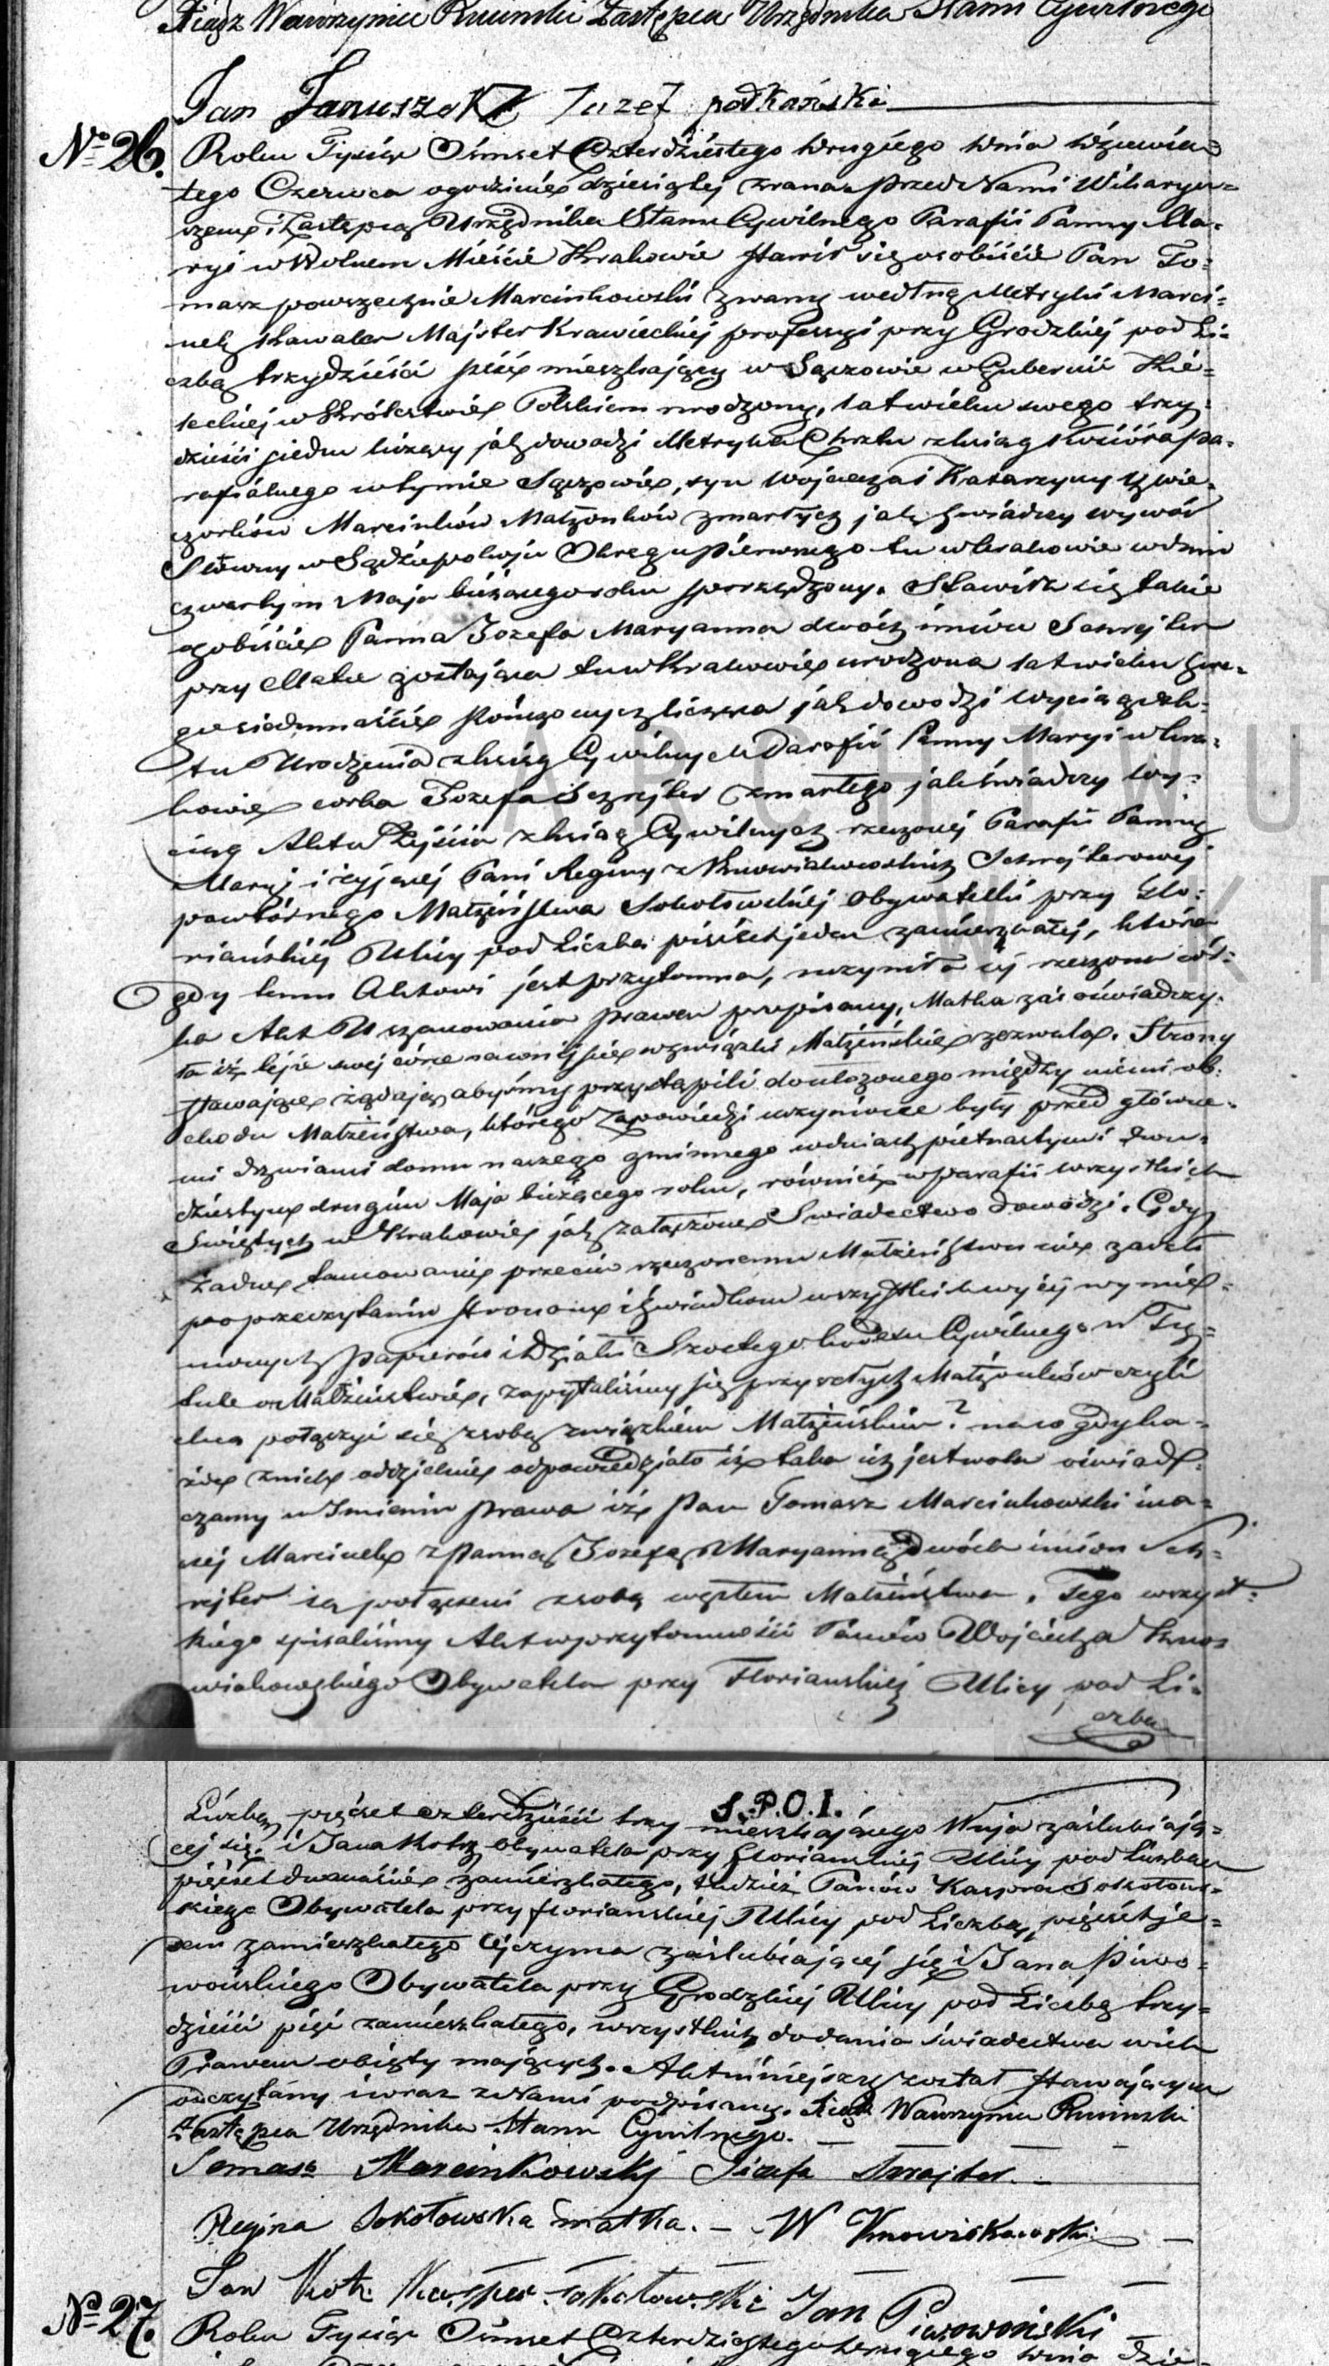 Xiądz Wawrzyniec Rusinski Zastępca Urzędnika Stanu Cywilnego
Jan Januszek Juzef podkański
No 26.
Roku Tysiąc Ośmset Czterdziestego drugiego dnia
tego Czerwca o godzinie dziesiątej zrana przed Nami Wikaryu=
szem i Zastępcą Urzędnika Stanu Cywilnego Parafii Panny Ma=
ryi w Wolnem Mieście Krakowie stawił się osobiście Pan To=
masz powszechnie Marcinkowski zwany według Metryki Marci=
nek Kawaler Majster Krawieckiej professyi przy Grodzkiej pod Li=
czbą trzydzieści pięć mieszkający w Sączowie w Gubernii Kie=
leckiej w Królestwie Polskiem urodzony, lat wieku swego trzy=
dzieści siedm liczący jak dowodzi Metryka Chrztu z ksiąg Kościoła pa=
rafialnego w tymie Sączowie, syn Wojciecha i Katarzyny z Wie=
czorków Marcinków Małżonków zmarłych jak świadczy wywód
Słowny w Sądzie pokoju Okręgu pierwszego tu w Krakowie w dniu
czwartym Maja bieżącego roku sporządzony. Stawiła się także
osobiście Panna Jozefa Maryanna dwóch imion Schrejter
przy Matce zostająca tu w Krakowie urodzona lat wieku swe=
go siedmnaście skończonych licząca jak dowodzi wyciąg z Ak=
tu Urodzenia z ksiąg Cywilnych Parafii Panny Maryi w Kra=
kowie córka Jozefa Schrejter zmartego jak świadczy wy=
ciąg Aktu Zejścia z ksiąg Cywilnych rzeczonej Parafii Panny
Maryi i żyjącej Pani Reginy z Knowiakowskich Schrejterowej
powtórnego Małżeństwa Sokołowskiej Obywatelki przy Flo=
riańskiej Ulicy pod Liczbą pięćset jeden zamieszkałej, która
gdy temu Aktowi jest przytomna, uczyniła jej rzeczona cór=
ka Akt Uszanowania prawem przepisany, Matka zaś oświadczy=
ła iż tejże swej córce na wnijście w związki Małżeńskie zezwala. Strony
stawające żądają abyśmy przystąpili do ułożonego między niemi ob=
chodu Małżeństwa, którego Zapowiedzi uczynione były przed główne=
mi drzwiami domu naszego gminnego w dniach piętnastym i dwu=
dziestym drugim Maja bieżącego roku, również w Parafii wszystkich
Świętych w Krakowie jak załączone Świadectwo dowodzi. Gdy
żadne tamowanie przeciw rzeczonemu Małżeństwu nie zaszło
po przeczytaniu stronom i świadkom wszystkich wyżej wymie=
nionych papierów i Działu Szóstego kodexu Cywilnego w Ty=
tule o Małżeństwie, zapytaliśmy się przyszłych Małżonków czyli
chcą połączyć się z sobą związkiem Małżeńskim? na co gdy ka=
żde z nich oddzielnie odpowiedziało iż taka ich jest wola oświad=
czamy w Imieniu Prawa iż Pan Tomasz Marcinkowski ina=
czej Marcinek z Panną Jozefą Maryanną dwóch imion Sch=
rejter są połączeni z sobą węzłem Małżeństwa. Tego wszyst=
kiego spisaliśmy Akt w przytomności Panów Wojciecha Know=
wiakowskiego Obywatela przy Floriańskiej Ulicy pod Li=
czbą
S.P.O.I.
Liczbą pięćset czterdzieści trzy mieszkającego Wuja zaślubiają=
cej się i Jana Kotz Obywatela przy Floriańskiej Ulicy pod Liczbą
pięćset dwanaście zamieszkałego, tudzież Panów Kaspra Sokołow=
skiego Obywatela przy Floriańskiej Ulicy pod Liczbą pięćset je=
den zamieszkałego Ojczyma zaślubiającej się i Jana Piwo=
wońskiego Obywatela przy Grodzkiej Ulicy pod Liczbą trzy=
dzieści pięć zamieszkałego, wszystkich do dania świadectwa wiek
Prawem objęty mających. Akt niniejszy został stawającym
odczytany i wraz z Nami podpisany. Xiądz Wawrzyniec Rusinski
Zastępca Urzędnika Stanu Cywilnego.
Tomasz Marcinkowski Józefa Szrajter
Regina Sokołowska matka. – W Knowiakowski
Jan Kotz Kasper Sokołowski Jan Piwowoński
No 27.
Roku Tysiąc Ośmset Czterdziestego drugiego dnia dzie=